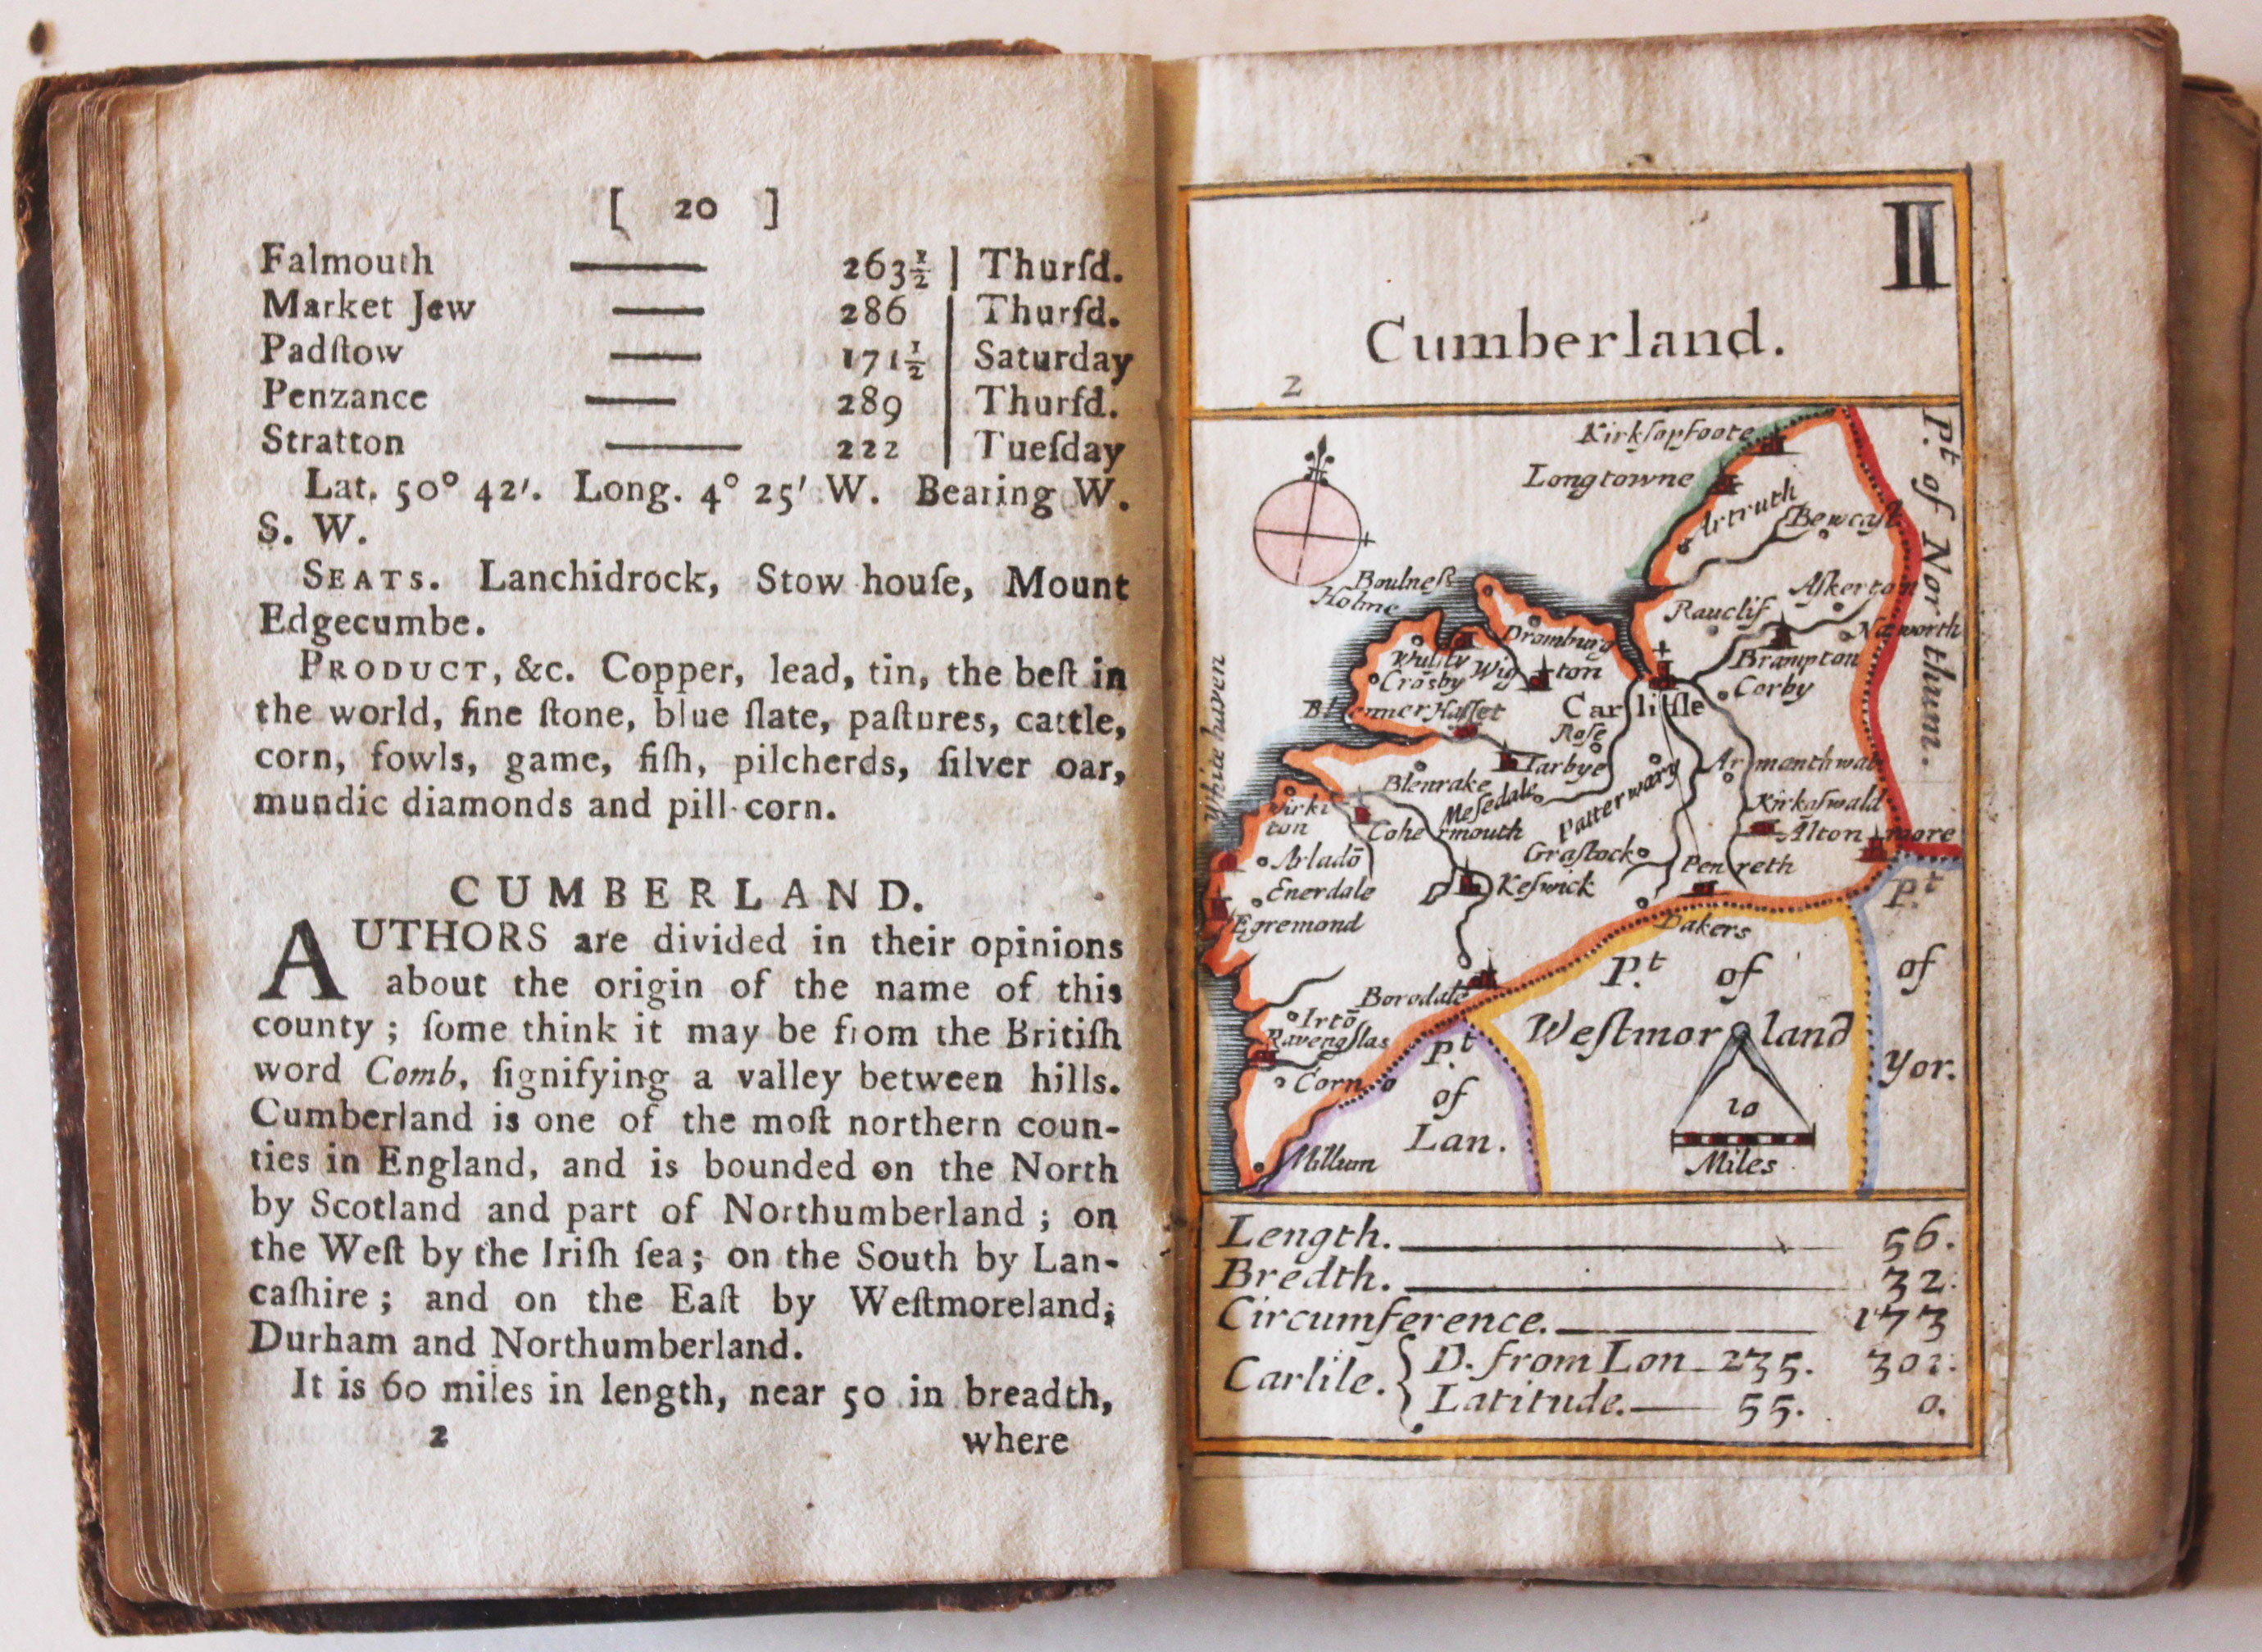 [ 20 ]
Falmouth —— 263½ | Thurſd.
Market Jew —— 286 | Thurſd.
Padſtow —— 171½ | Saturday
Penzance —— 289 | Thurſd.
Stratton —— 222 | Tueſday
Lat. 50° 42′. Long. 4° 25′ W. Bearing W.
S. W.
SEATS. Lanchidrock, Stow houſe, Mount
Edgecumbe.
PRODUCT, &c. Copper, lead, tin, the beſt in
the world, fine ſtone, blue ſlate, paſtures, cattle,
corn, fowls, game, fiſh, pilcherds, ſilver oar,
mundic diamonds and pill-corn.
CUMBERLAND.
AUTHORS are divided in their opinions
about the origin of the name of this
county; ſome think it may be from the Britiſh
word Comb, ſignifying a valley between hills.
Cumberland is one of the moſt northern coun-
ties in England, and is bounded on the North
by Scotland and part of Northumberland; on
the Weſt by the Iriſh ſea; on the South by Lan-
caſhire; and on the Eaſt by Weſtmoreland,
Durham and Northumberland.
It is 60 miles in length, near 50 in breadth,
2 where
II
Cumberland.
2
Kirkſopfoote
Longtowne
Artruth
Bewcaſt
Pt. of Northum.
Boulneſs
Holme
Aſkerton
Rauclif
Naworth
Dromburg
Brampton
Wulſty
Wigton
Crosby
Corby
Carliſle
Blennerhaſſet
Roſe
White haven
Tarbye
Armanthwat
Blenrake
Meſedale
Patterwary
Kirkoſwald
Wirki
ton
Cohermouth
Altonmore
Graſtock
Penreth
Arladō
Keſwick
Enerdale
Egremond
Dakers
Borodale
Irtō
Ravenglas
Corno
Millum
Pt. of Weſtmorland
Pt. of Yor.
Pt. of Lan.
10
Miles
Length. —— 56.
Bredth. —— 32.
Circumference. —— 173
Carlile. { D. from Lon 235. 301.
Latitude. —— 55. 0.